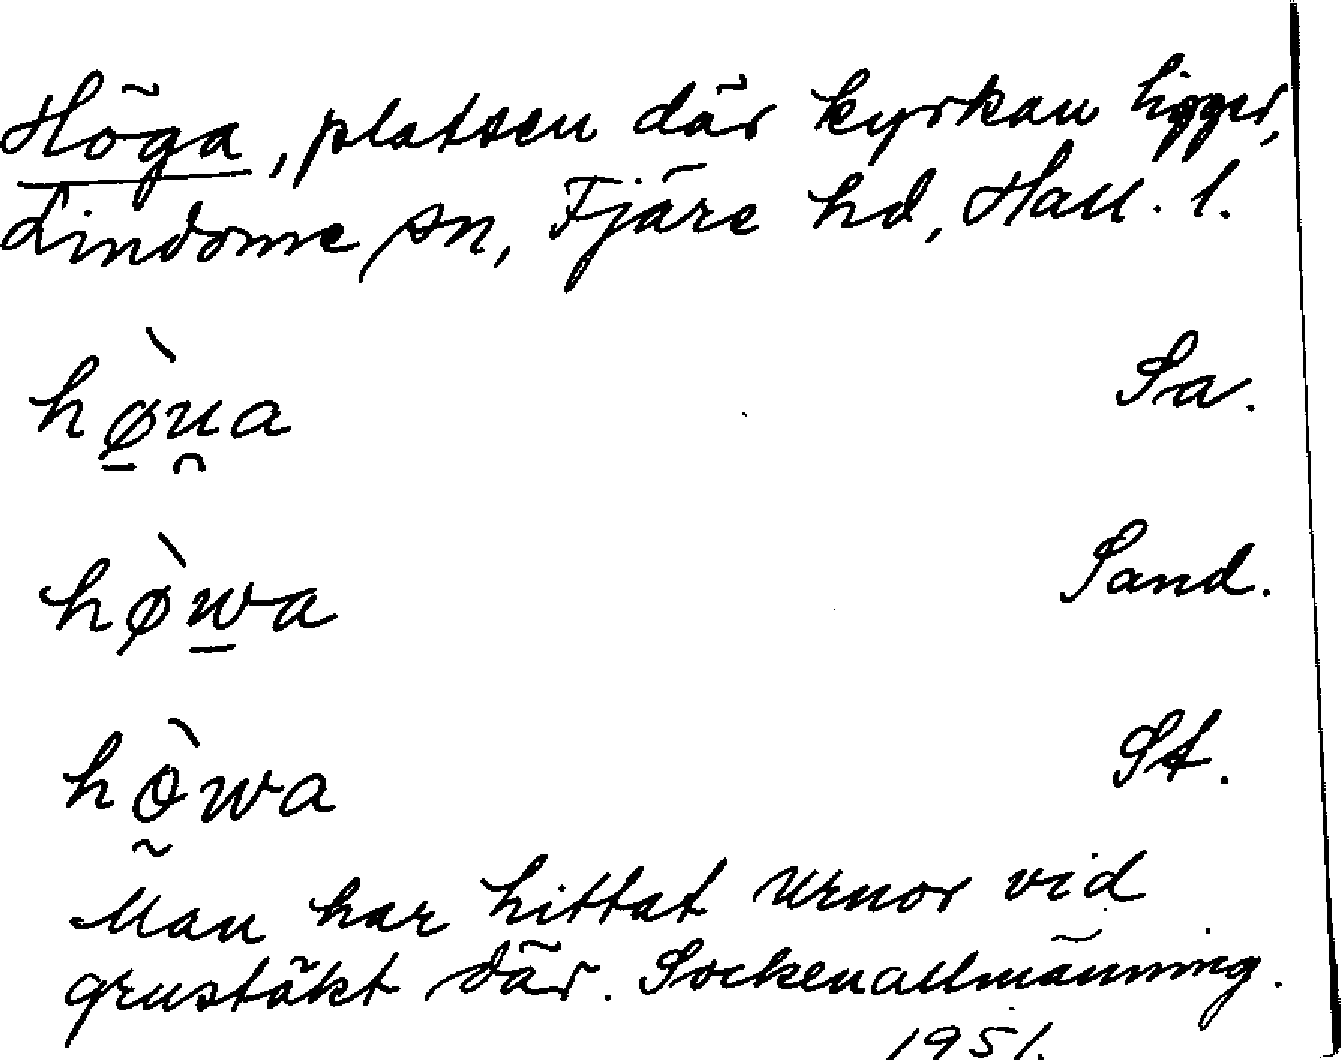 Höga, platsen där kyrkan ligger,
Lindome sn, Fjäre hd, Hall. l.
hø̠̀u̯a Sa.
hø̀w̠a Sand.
hò̰wa St.
Man har hittat urnor vid
grustäkt där. Sockenallmänning.
1951.